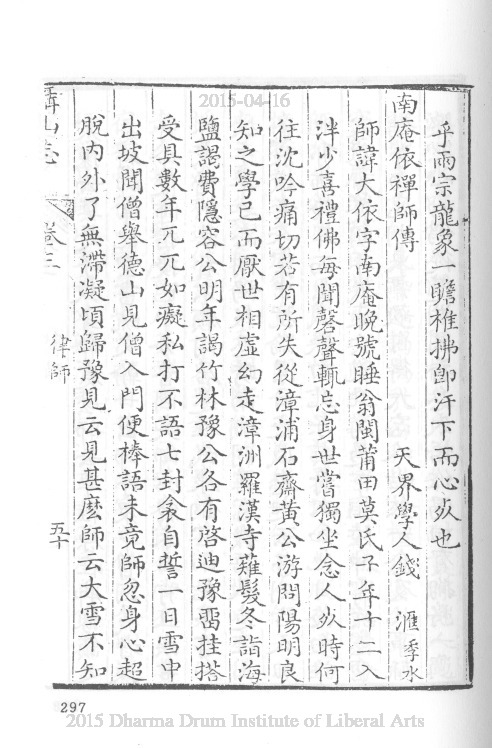 2015-04-16
乎兩宗龍象一瞻椎拂卽汗下而心死也
南庵依禪師傳 天界學人錢 澦季水
師諱大依字南庵晚號睡翁閩莆田莫氏子年十二入
泮少喜禮佛每聞磬聲輒忘身世嘗獨坐念人死時何
往沈吟痛切若有所失從漳浦石齋黃公游問陽明良
知之學已而厭世相虛幻走漳洲羅漢寺薙髮冬詣海
鹽謁費隱容公明年謁竹林豫公各有啓迪豫畱挂搭
受具數年兀兀如癡私打不語七封衾自誓一日雪中
出坡聞僧舉德山見僧入門便棒語未竟師忽身心超
脫內外了無滯凝頃歸豫見云見甚麽師云大雪不知
山志 卷三 律師 五十
297
2015 Dharma Drum Institute of Liberal Arts